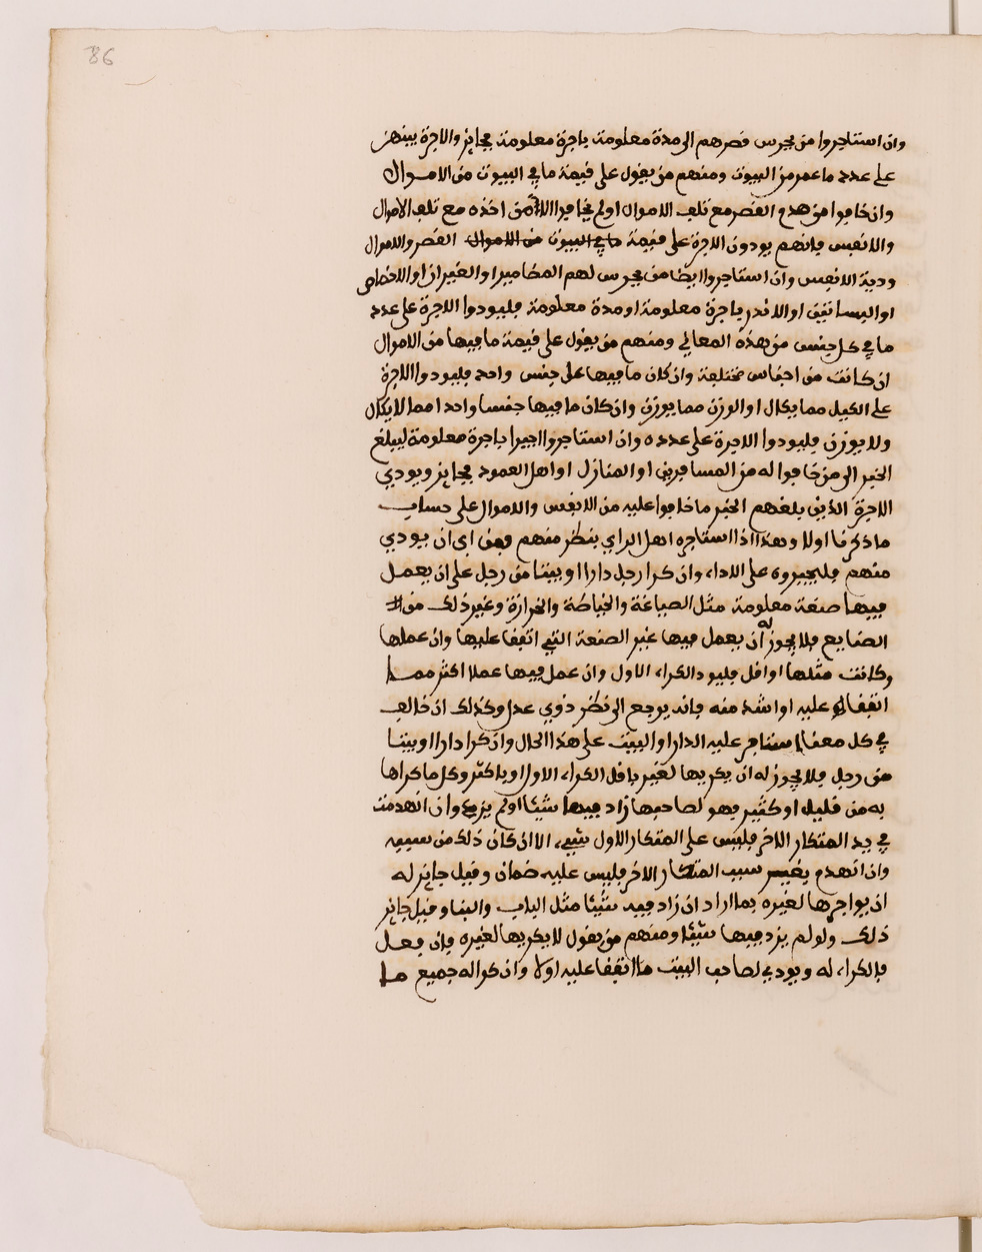 86
وان استاجروا من يحرس قصرهم الى مدة معلومة باجرة معلومة فجائز والاجرة بينهم
على عدد ما عمر من البيوت ومنهم من يقول على قيمة ما في البيوت من الاموال
وان خافوا من هدم القصر مع تلف الاموال اولم يخافوا الا من اخذه مع تلف الاموال
والانفس فانهم يودون الاجرة على قيمة ما في البيوت من الاموال القصر والاموال
ودية الانفس وان استاجروا ايضا من يحرس لهم المطامير او الغيران او الاخصاص
او البساتين او الاندر باجرة معلومة او مدة معلومة فليودوا الاجرة على عدد
ما في كل جنس من هذه المعاني ومنهم من يقول على قيمة ما فيها من الاموال
ان كانت من اجناس مختلفة وان كان ما فيها على جنس واحد فليودوا الاجرة
على الكيل مما يكال او الوزن مما يوزن وان كان ما فيها جنسا واحدا مما لا يكال
ولا يوزن فليودوا الاجرة على عدده وان استاجروا اجيرا باجرة معلومة ليبلغ
الخبر الى من خافوا له من المسافرين او المنازل او اهل العمود فجائز ويودي
الاجرة الذين بلغهم الخبر ما خافوا عليه من الانفس والاموال على حساب
ما ذكرنا اولا وهذا اذا استاجره اهل الراي بنظر منهم فمن ابى ان يودي
منهم فليجبروه على الاداء وان كرا رجل دارا او بيتا من رجل على ان يعمل
فيها صنعة معلومة مثل الصياغة والخياطة والخرازة وغير ذلك من
الصنايع فلا يجوز له ان يعمل فيها غير الصنعة التي اتفقا عليها وان عملها
وكانت مثلها او اقل فليود الكراء الاول وان عمل فيها عملا اكثر مما
اتفقا عليه او اشد منه فانه يرجع الى نظر ذوي عدل وكذلك ان خالف
في كل معنا استاجر عليه الدار او البيت على هذا الحال وان كرا دارا او بيتا
من رجل فلا يجوز له ان يكريها لغير باقل الكراء الاول او باكثر وكل ما كراها
به من قليل او كثير فهو لصاحبها زاد فيها شيئا اولم يزد وان انهدمت
في يد المتكار الاخر فليس على المتكار الاول شيء الا ان كان ذلك من سببه
وان انهدم بغير سبب المتكار الاخر فليس عليه ضمان وقيل جائز له
ان يواجرها لغيره بما اراد ان زاد فيه شيئا مثل الباب والبنا وقيل جائز
ذلك ولو لم يزد فيها شيئا ومنهم من يقول لا يكريها لغيره فان فعل
فالكراء له ويودي لصاحب البيت ما اتفقا عليه اولا وان كرا له جميع ما